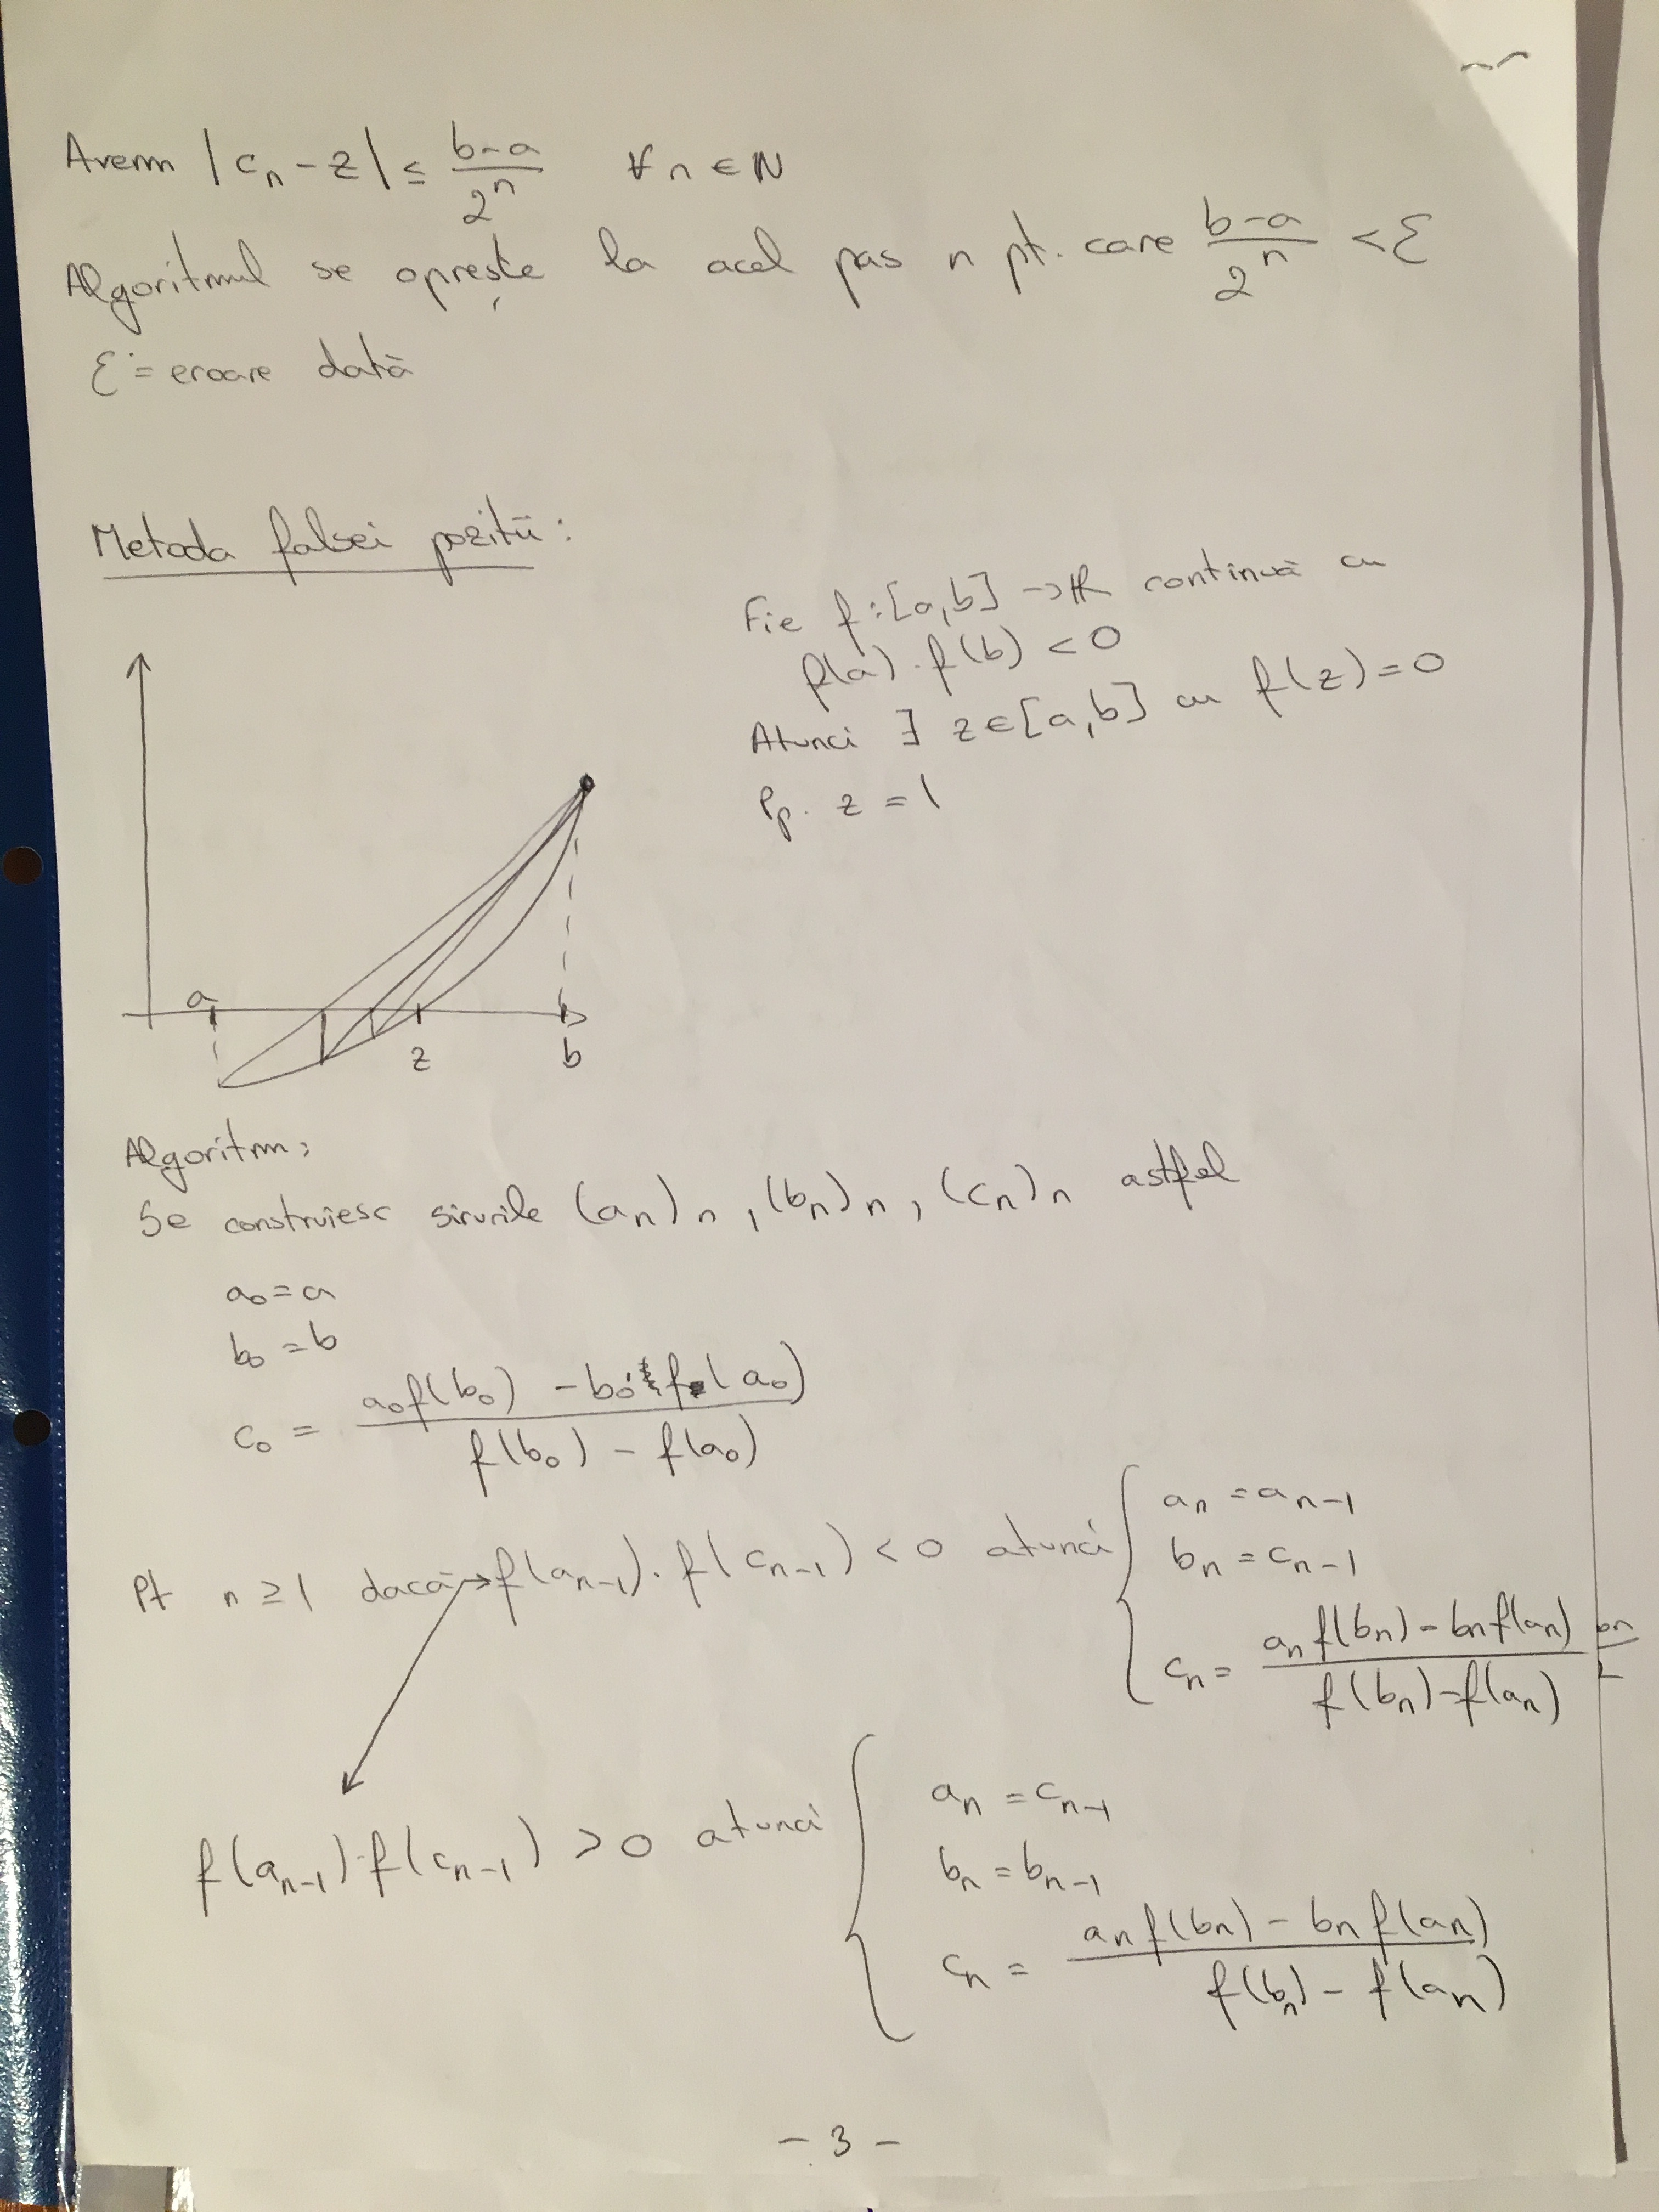 Avem |cₙ - z| ≤ (b-a)/2ⁿ ∀ n ∈ ℕ
Algoritmul se oprește la acel pas n pt. care (b-a)/2ⁿ < ε
ε = eroare dată
Metoda falsei poziții:
Fie f:[a,b] → ℝ continuă cu
f(a)·f(b) < 0
Atunci ∃ z∈[a,b] cu f(z)=0
Pp. z = 1
a
z
b
Algoritm:
Se construiesc sirurile (aₙ)ₙ, (bₙ)ₙ, (cₙ)ₙ astfel
a₀ = a
b₀ = b
c₀ = (a₀f(b₀) - b₀·f(a₀))/(f(b₀) - f(a₀))
Pt n ≥ 1 dacă → f(aₙ₋₁)·f(cₙ₋₁) < 0 atunci { aₙ = aₙ₋₁
bₙ = cₙ₋₁
cₙ = (aₙf(bₙ) - bₙf(aₙ))/(f(bₙ) - f(aₙ))
f(aₙ₋₁)·f(cₙ₋₁) > 0 atunci { aₙ = cₙ₋₁
bₙ = bₙ₋₁
cₙ = (aₙf(bₙ) - bₙf(aₙ))/(f(bₙ) - f(aₙ))
- 3 -